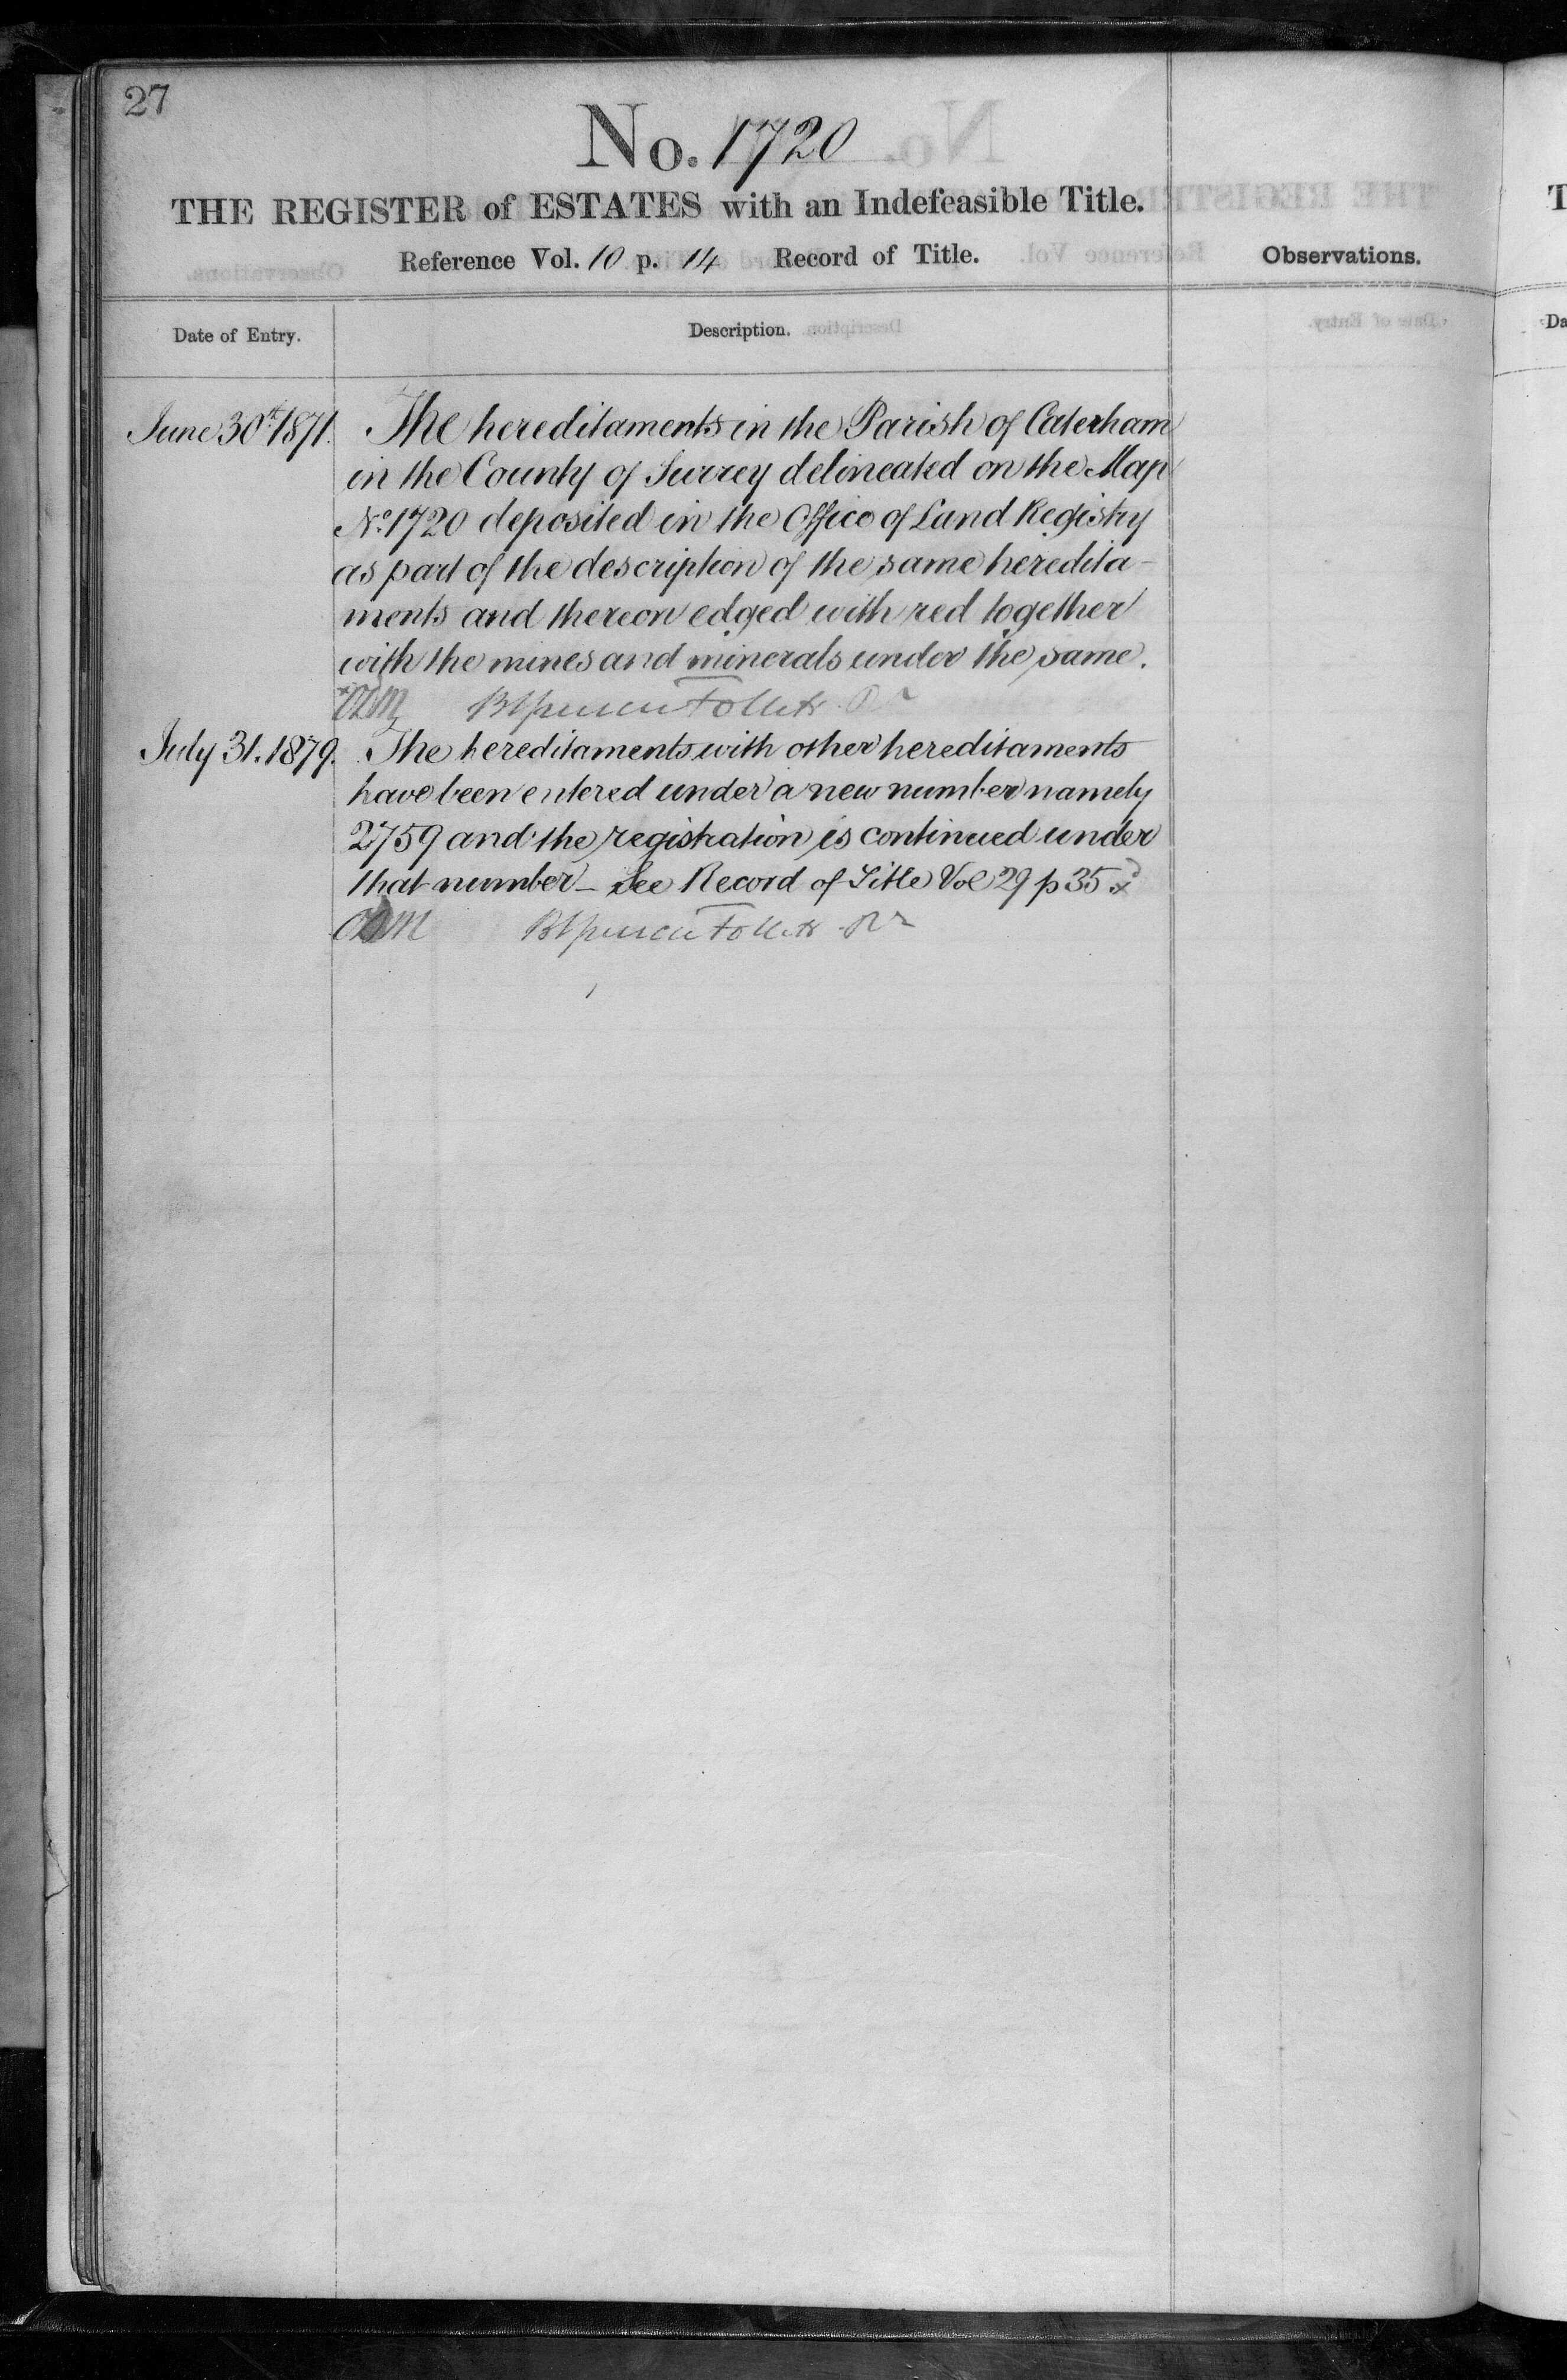 27
No. 1720
THE REGISTER of ESTATES with an Indefeasible Title.
Reference Vol. 10 p. 14 Record of Title.
Observations.
Date of Entry.
Description.
June 30th 1871. The hereditaments in the Parish of Caterham
in the County of Surrey delineated on the Map
No. 1720 deposited in the Office of Land Registry
as part of the description of the same heredita-
ments and thereon edged with red together
with the mines and minerals under the same.
Brent Spencer Follett Rr
July 31. 1879. The hereditaments with other hereditaments
have been entered under a new number namely
2759 and the registration is continued under
that number - See Record of Title Vol 29 p 35
Brent Spencer Follett Rr